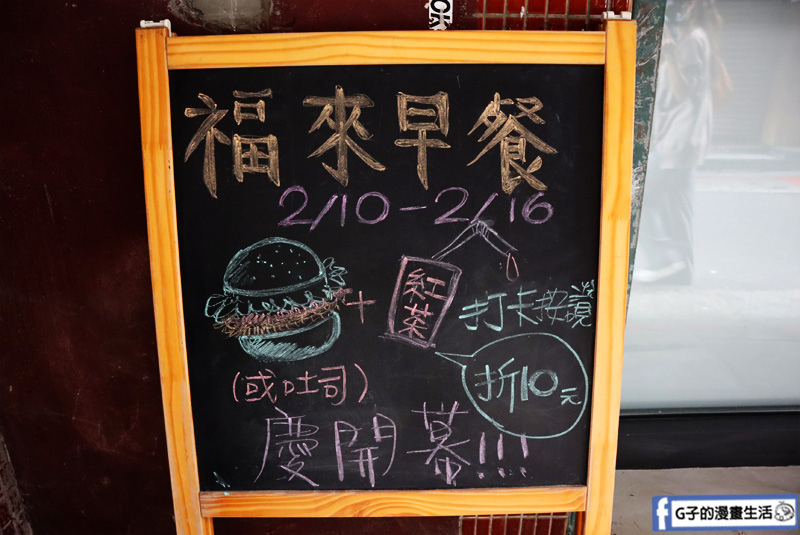 CK
福來早餐
2/10-2/16
+
紅茶
打卡按讚
(或吐司)
折10元
慶開幕!!!
f G子的漫畫生活